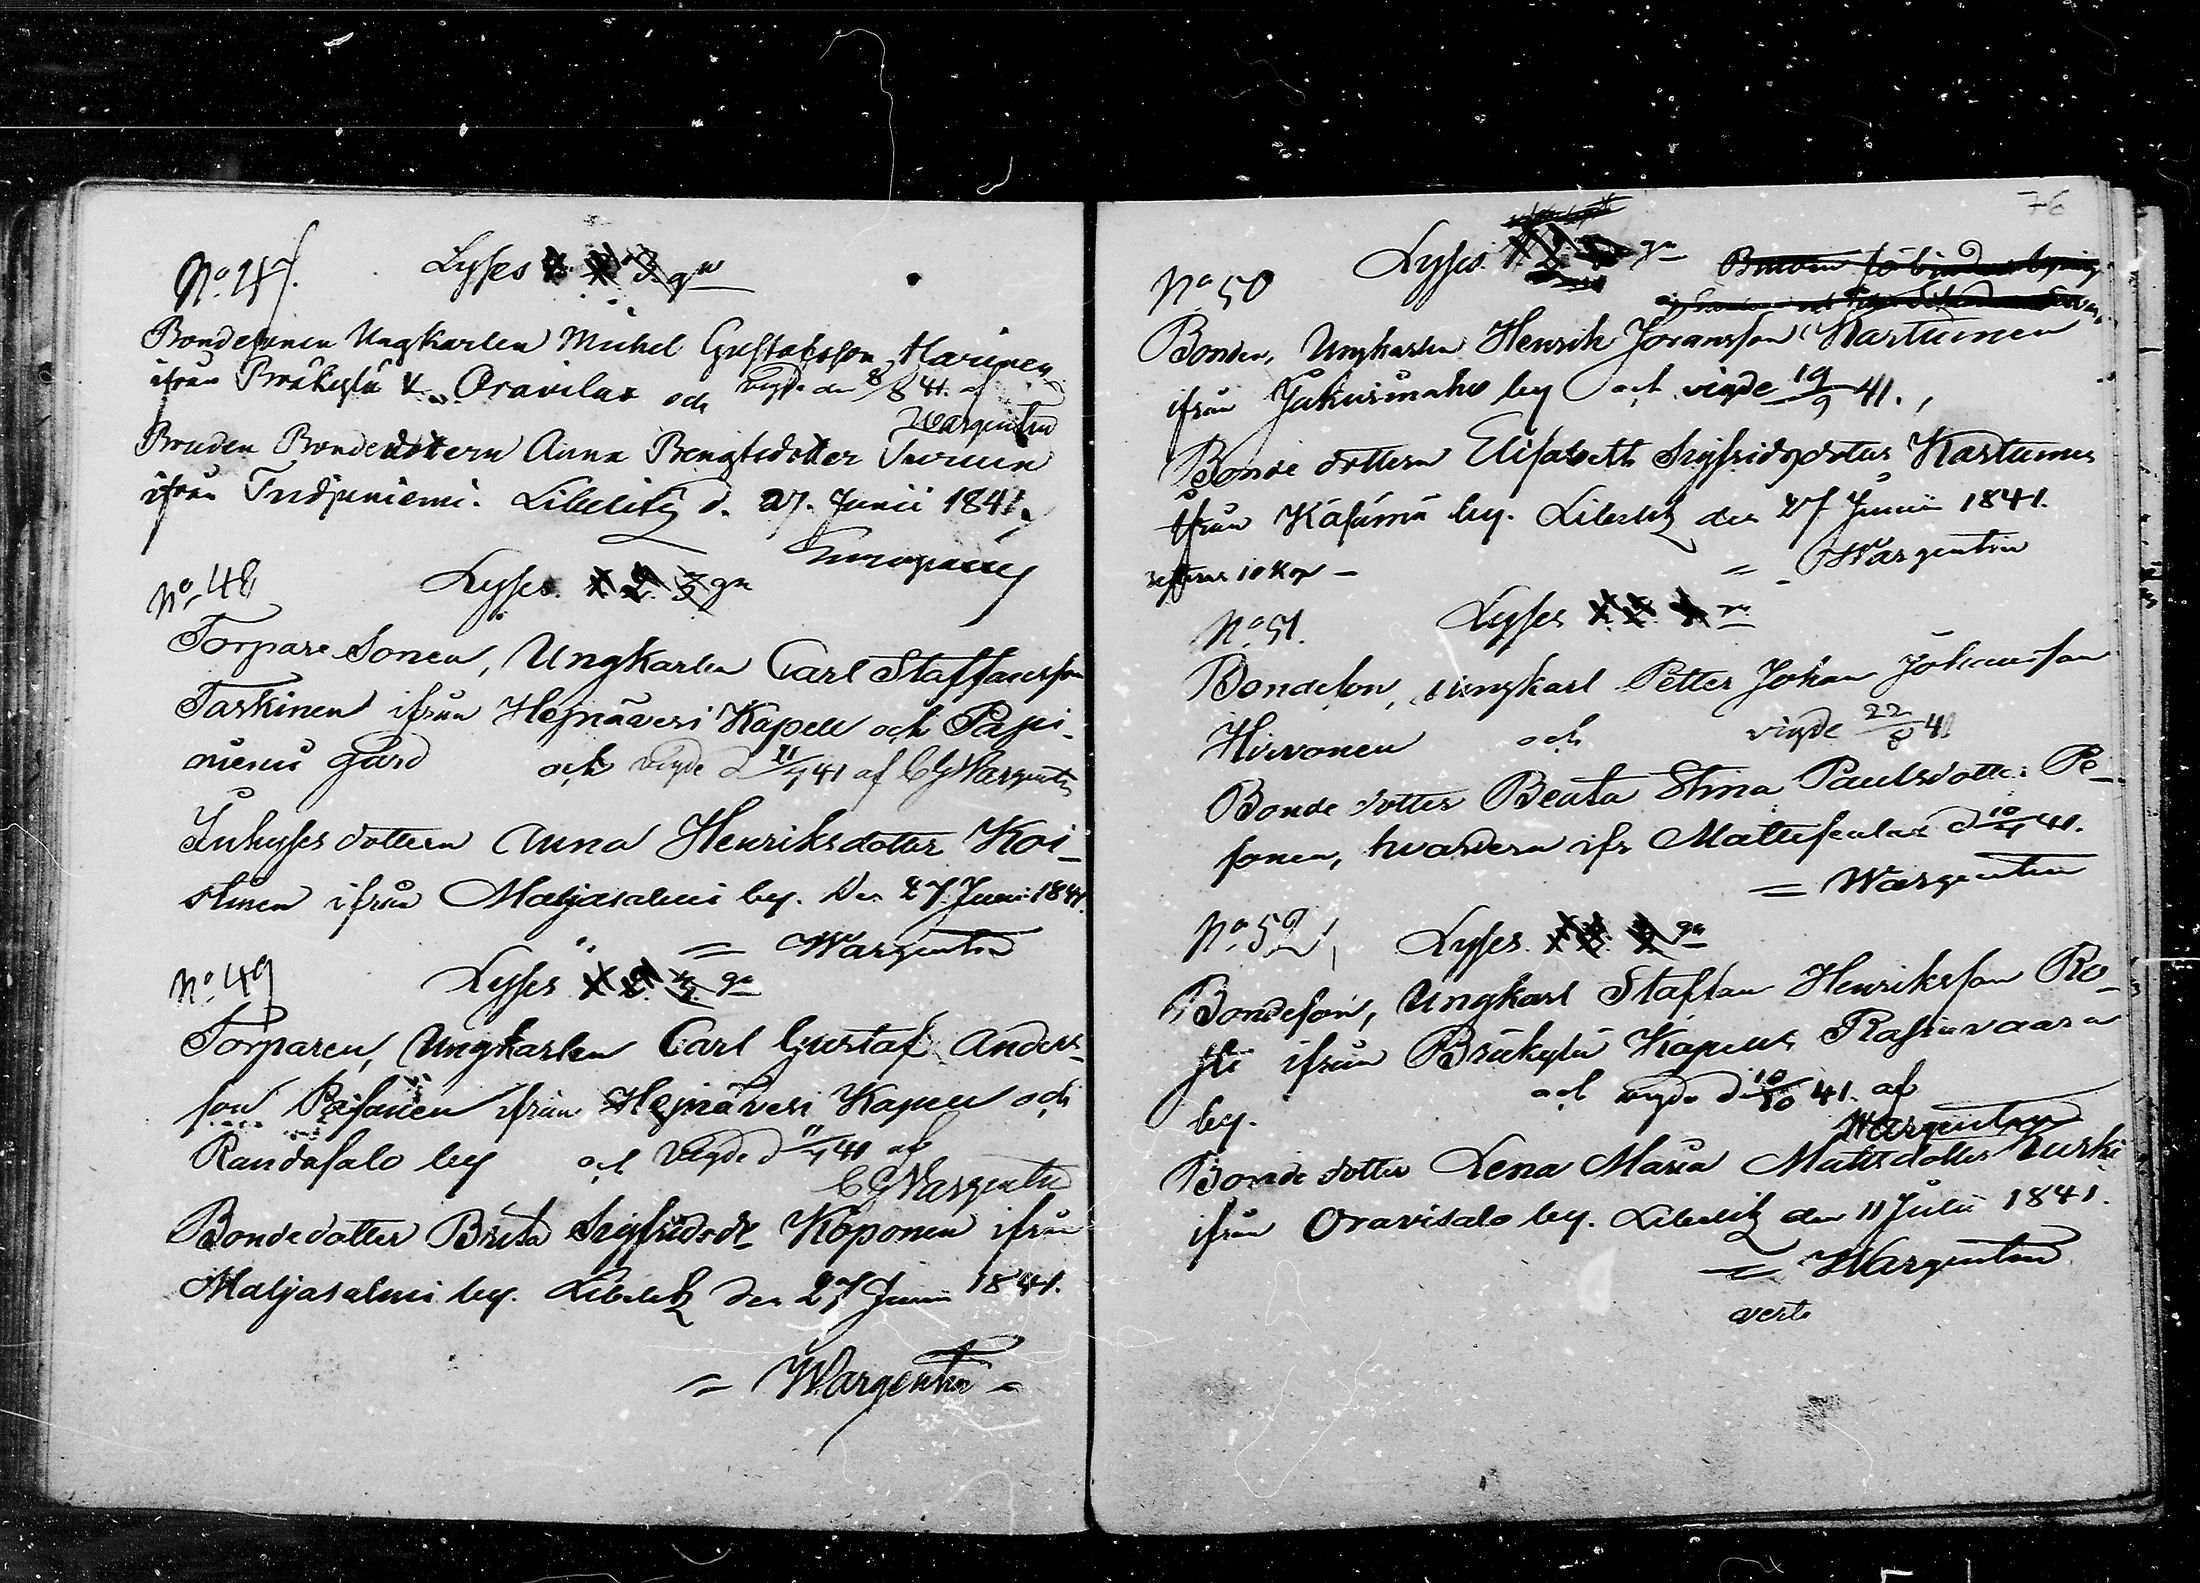 No 47. Lyses 1. 2. 3. gn
Bondesonen Ungkarlen Michel Gustafsson Harinen
ifrån Bräkylä K. Oravilax och vigde den 8/8 41. af
Wargentin
Bruden Bondedottern Anna Bengtsdotter Turunen
ifrån Tutjuniemi. Libelitz d. 27. Junii 1841.
No 48 Lyses. 1. 2. 3 gn
Torpare Sonen, Ungkarlen Carl Staffansson
Taskinen ifrån Hejnävesi Kapell och Papi-
niemi gård och vigde d 11/7 41 af CGWargentin
Inhyses dottern Anna Henriksdotter Koi-
stinen ifrån Maljasalmi by. Den 27. Junii 1841.
= Wargentin
No 49 Lyses 1. 2. 3. gn
Torparen, Ungkarlen Carl Gustaf Anders-
son Paisanen ifrån Hejnävesi Kapell och
Randasalo by och vigde d 11/7 41 af
CGWargentin
Bondedotter Brita Sigfridsdr Koponen ifrån
Maljasalmi by. Libelitz den 27 Junii 1841.
= Wargentin =
76
No 50 Lyses. 1. 2. 3. gn
Bonden, Ungkarlen Henrik Joransson Karttunen
ifrån by och vigde 19/9 41.
Bonde dottern Elisabeth Sigfridsdotter Karttunen
ifrån Käsämä by. Libelitz den 27 Junii 1841.
10 Kop — = Wargentin
No 51. Lyses 1. 2. 3 gn
Bondeson, ungkarl Petter Johan Johansson
Hirvonen och vigde 22/8 41
Bonde dotter Beata Stina Paulsdotter Pe-
sonen, hvardera ifr Mattisenlax d 10/7 41.
= Wargentin
No 52 Lyses. 1. 2. 3 gn
Bondeson, Ungkarl Staffan Henriksson Ro-
sti ifrån Bräkylä Kapells Rasivaara
by. och vigde d 10/10 41. af
Wargentin
Bonde dotter Lena Maria Mattsdotter Turki
ifrån Oravisalo by. Libelitz den 11 Julii 1841.
= Wargentin
verte